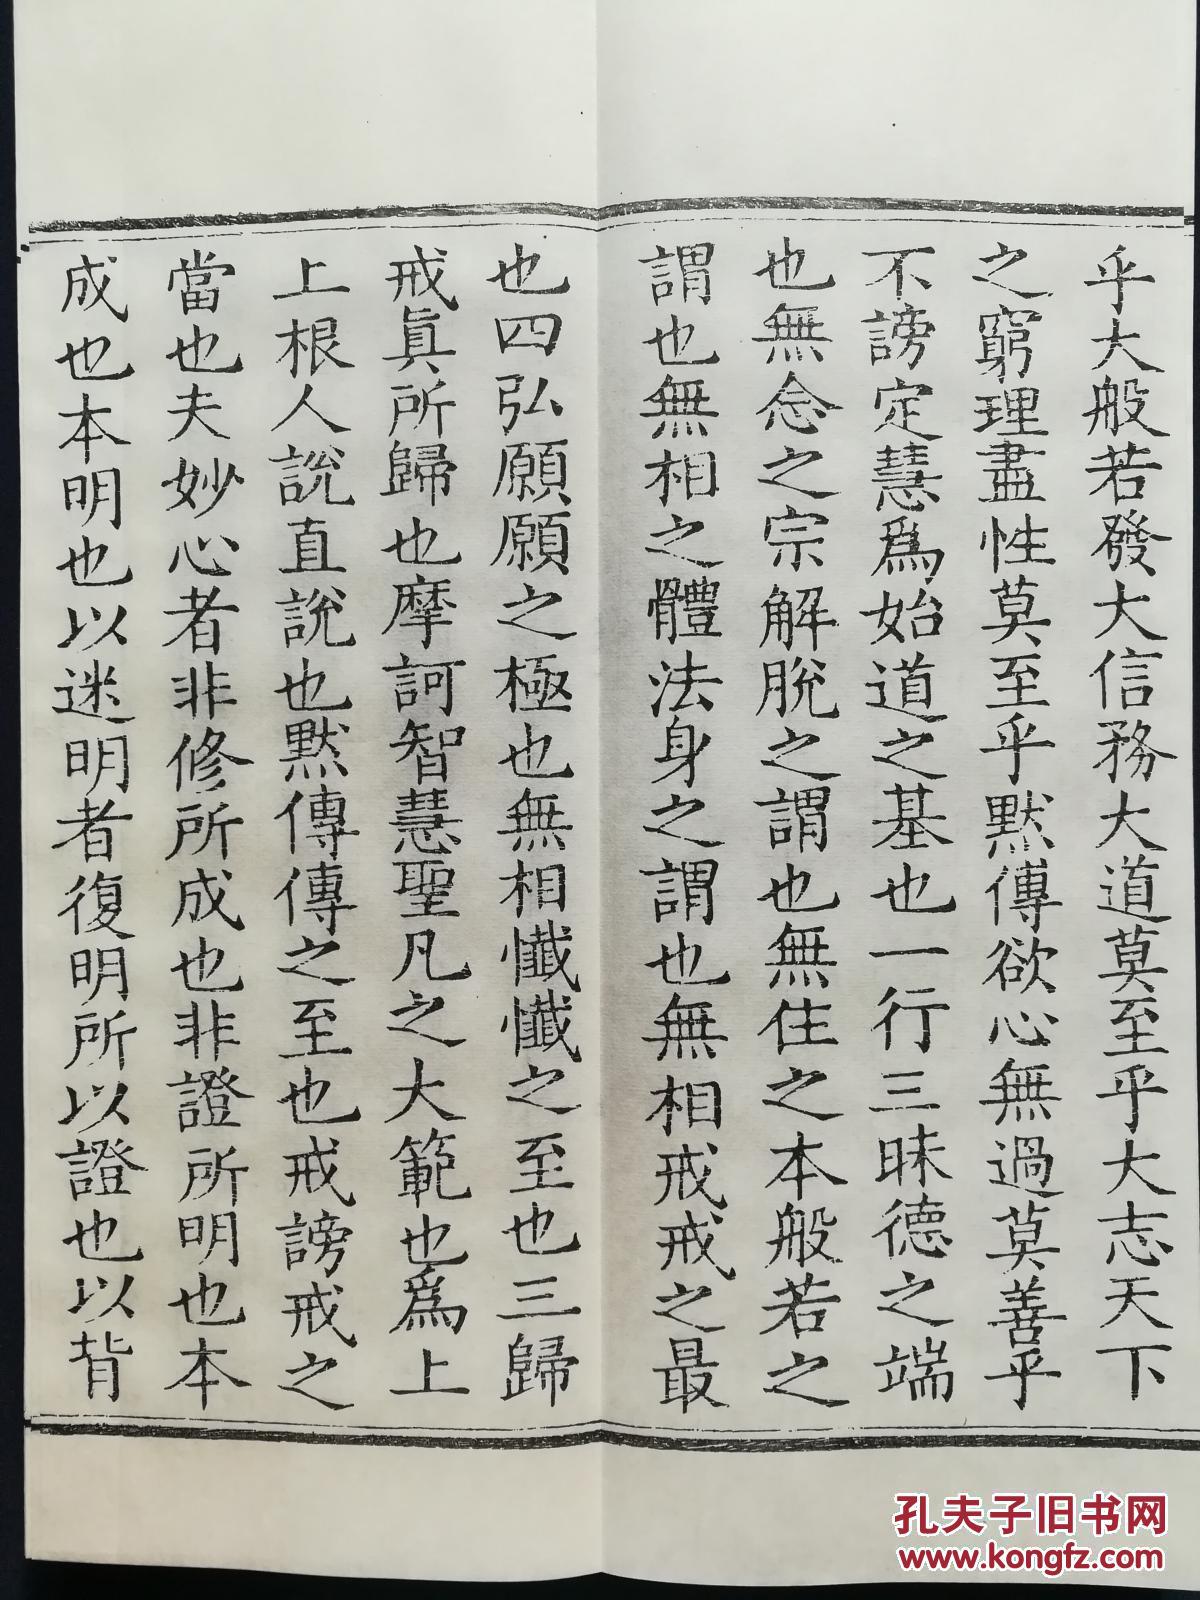 乎大般若發大信務大道莫至乎大志天下
之窮理盡性莫至乎默傳欲心無過莫善乎
不謗定慧爲始道之基也一行三昧德之端
也無念之宗解脫之謂也無住之本般若之
謂也無相之體法身之謂也無相戒戒之最
也四弘願願之極也無相懺懺之至也三歸
戒眞所歸也摩訶智慧聖凡之大範也爲上
上根人說直說也默傳傳之至也戒謗戒之
當也夫妙心者非修所成也非證所明也本
成也本明也以迷明者復明所以證也以背
孔夫子旧书网
www.kongfz.com